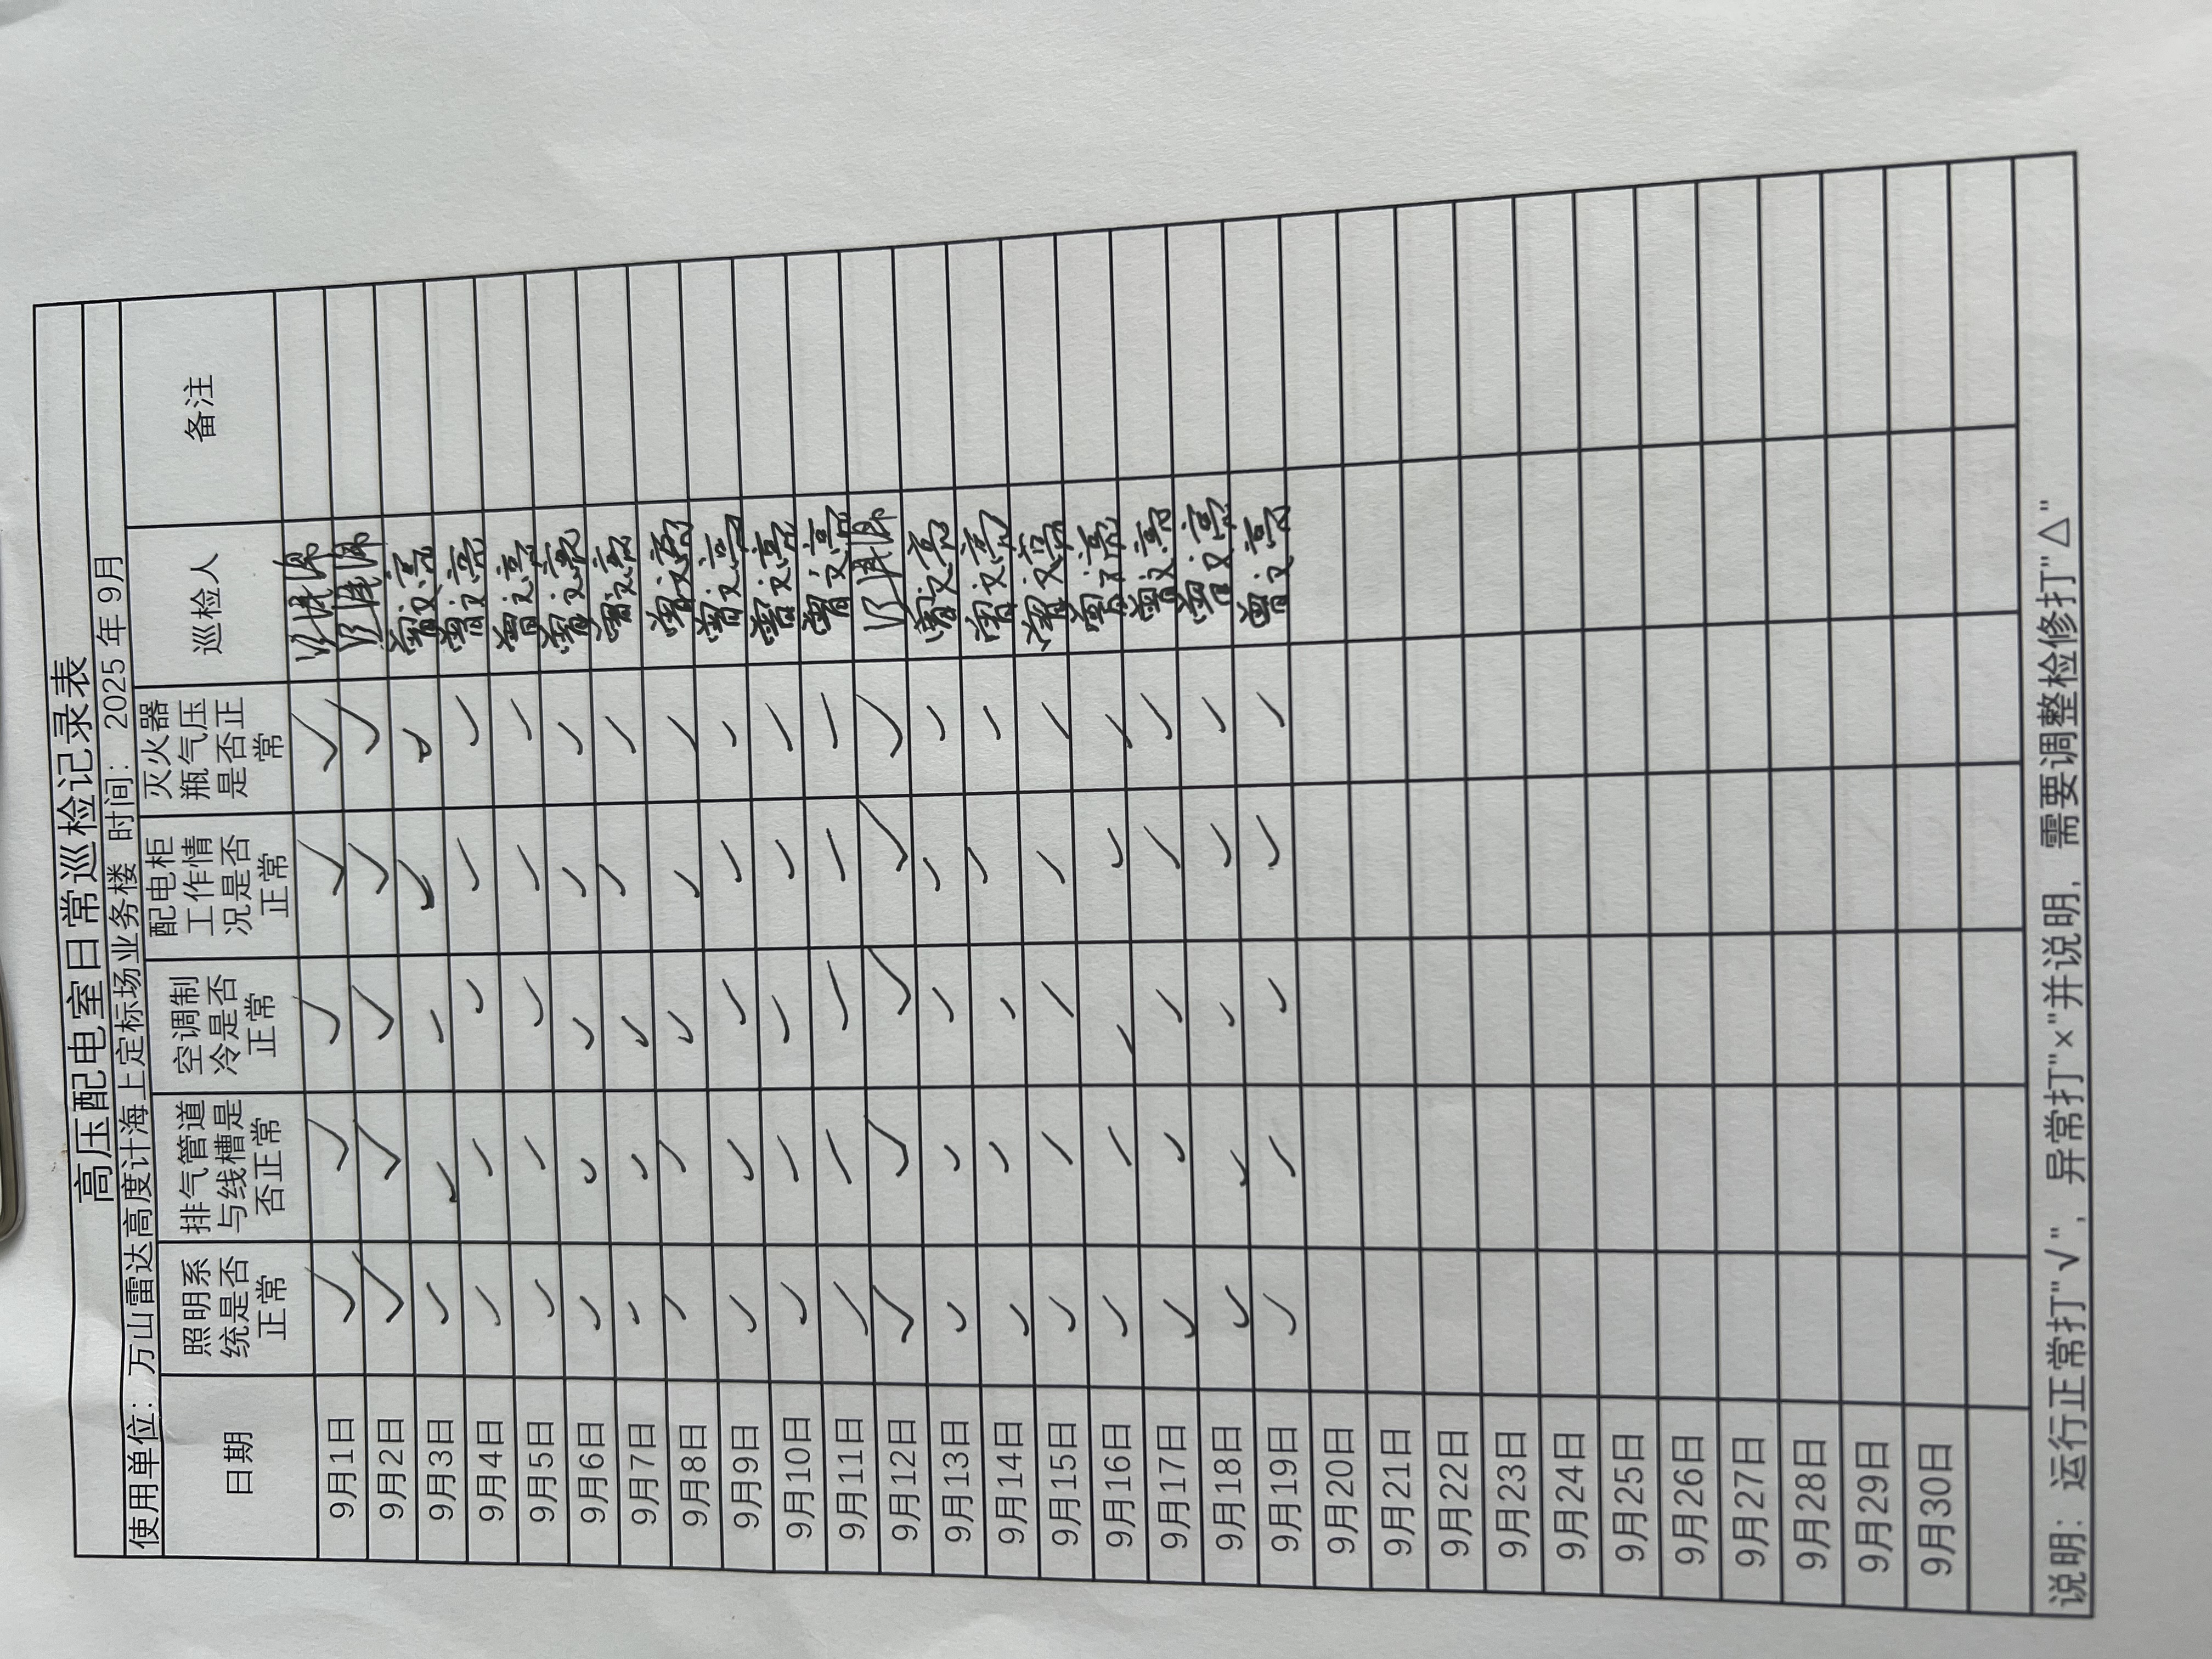 高压配电室日常巡检记录表
使用单位：万山雷达高度计海上定标场业务楼 时间：2025年9月
日期 照明系统是否正常 排气管道与线槽是否正常 空调制冷是否正常 配电柜工作情况是否正常 灭火器瓶气压是否正常 巡检人 备注
9月1日 ✓ ✓ ✓ ✓ ✓
9月2日 ✓ ✓ ✓ ✓ ✓
9月3日 ✓ ✓ ✓ ✓ ✓ 曾文亮
9月4日 ✓ ✓ ✓ ✓ ✓ 曾文亮
9月5日 ✓ ✓ ✓ ✓ ✓ 曾文亮
9月6日 ✓ ✓ ✓ ✓ ✓ 曾文亮
9月7日 ✓ ✓ ✓ ✓ ✓ 曾文亮
9月8日 ✓ ✓ ✓ ✓ ✓ 曾文亮
9月9日 ✓ ✓ ✓ ✓ ✓ 曾文亮
9月10日 ✓ ✓ ✓ ✓ ✓ 曾文亮
9月11日 ✓ ✓ ✓ ✓ ✓ 曾文亮
9月12日 ✓ ✓ ✓ ✓ ✓
9月13日 ✓ ✓ ✓ ✓ ✓ 曾文亮
9月14日 ✓ ✓ ✓ ✓ ✓ 曾文亮
9月15日 ✓ ✓ ✓ ✓ ✓ 曾文亮
9月16日 ✓ ✓ ✓ ✓ ✓ 曾文亮
9月17日 ✓ ✓ ✓ ✓ ✓ 曾文亮
9月18日 ✓ ✓ ✓ ✓ ✓ 曾文亮
9月19日 ✓ ✓ ✓ ✓ ✓ 曾文亮
9月20日
9月21日
9月22日
9月23日
9月24日
9月25日
9月26日
9月27日
9月28日
9月29日
9月30日
说明：运行正常打"√"，异常打"×"并说明，需要调整检修打"△"